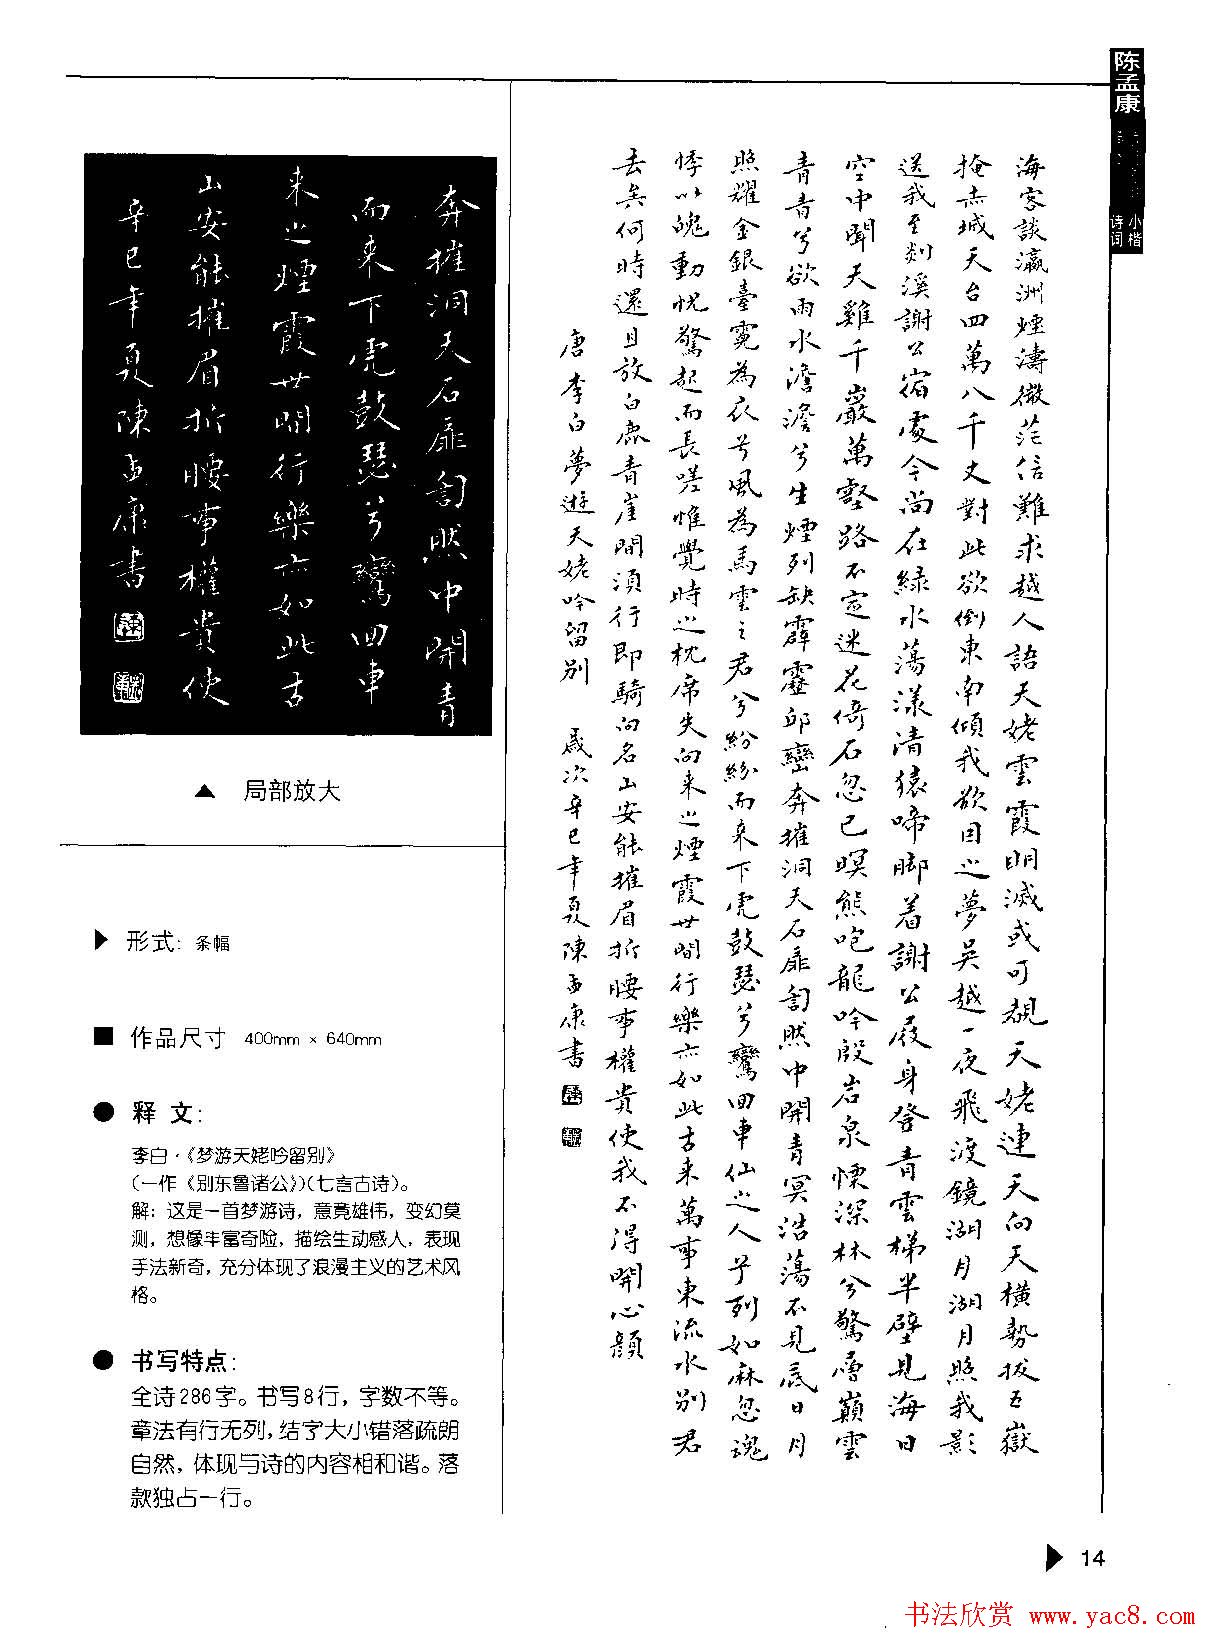 陈孟康
小楷
诗词
海客談瀛洲煙濤微茫信難求越人語天姥雲霞明滅或可覩天姥連天向天橫勢拔五嶽
掩赤城天台四萬八千丈對此欲倒東南傾我欲因之夢吳越一夜飛渡鏡湖月湖月照我影
送我至剡溪謝公宿處今尚在綠水蕩漾清猿啼脚着謝公屐身登青雲梯半壁見海日
空中聞天雞千巖萬壑路不定迷花倚石忽已暝熊咆龍吟殷岩泉慄深林兮驚層巔雲
青青兮欲雨水澹澹兮生煙列缺霹靂邱巒奔摧洞天石扉訇然中開青冥浩蕩不見底日月
照耀金銀臺霓為衣兮風為馬雲之君兮紛紛而来下虎鼓瑟兮鸞回車仙之人兮列如麻忽魂
悸以魄動怳驚起而長嗟惟覺時之枕席失向来之煙霞世間行樂亦如此古来萬事東流水別君
去矣何時還且放白鹿青崖間須行即騎向名山安能摧眉折腰事權貴使我不得開心顏
唐李白夢遊天姥吟留別 歲次辛巳年夏陳孟康書
奔摧洞天石扉訇然中開青
而来下虎鼓瑟兮鸞回車
来之煙霞世間行樂亦如此古
山安能摧眉折腰事權貴使
辛巳年夏陳孟康書
▲ 局部放大
▶ 形式: 条幅
■ 作品尺寸 400mm × 640mm
● 释 文:
李白·《梦游天姥吟留别》
(一作《别东鲁诸公》)(七言古诗)。
解: 这是一首梦游诗, 意境雄伟, 变幻莫
测, 想像丰富奇险, 描绘生动感人, 表现
手法新奇, 充分体现了浪漫主义的艺术风
格。
● 书写特点:
全诗286字。书写8行, 字数不等。
章法有行无列, 结字大小错落疏朗
自然, 体现与诗的内容相和谐。落
款独占一行。
▶ 14
书法欣赏 www.yac8.com